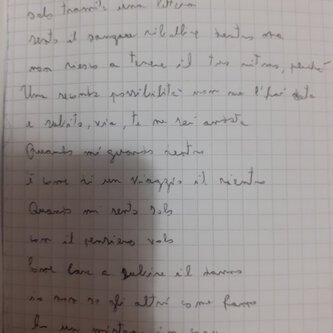 solo tramite una lettera
sento il sangue ribolle dentro ma
non riesco a tenere il tuo ritmo, perché
Una seconda possibilità non me l'hai data
e subito, via, te ne sei andata
Quando mi guardo dentro
è come se un viaggio il rientro
Quando mi sento solo
con il pensiero volo
come fare a il danno
io non so gli altri come fanno
ho un